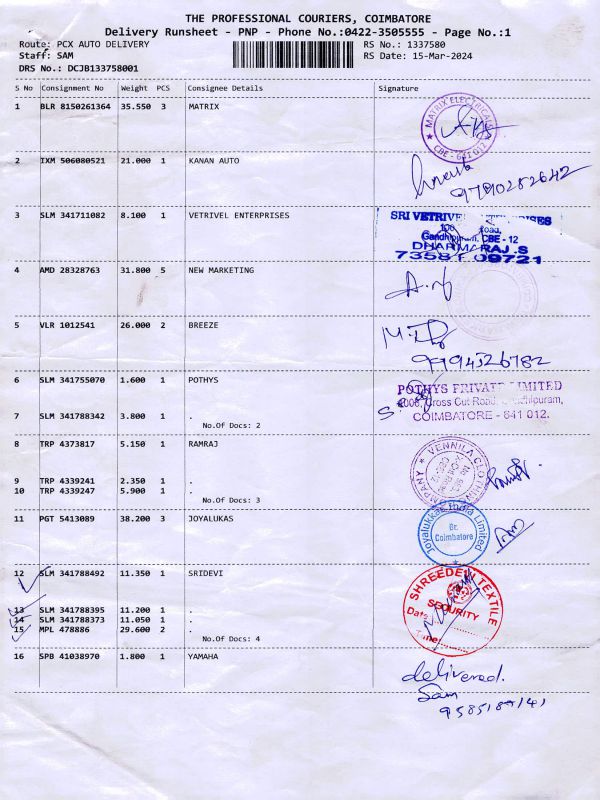 THE PROFESSIONAL COURIERS, COIMBATORE
Delivery Runsheet - PNP - Phone No.:0422-3505555 - Page No.:1
Route: PCX AUTO DELIVERY RS No.: 1337580
Staff: SAM RS Date: 15-Mar-2024
DRS No.: DCJB133758001
S No Consignment No Weight PCS Consignee Details Signature
1 BLR 8150261364 35.550 3 MATRIX
MATRIX ELECTRICALS
CBE - 641 012
2 IXM 506080521 21.000 1 KANAN AUTO
9790282642
3 SLM 341711082 8.100 1 VETRIVEL ENTERPRISES
SRI VETRIVEL ENTERPRISES
100 Road,
Gandhipuram, CBE - 12
DHARMARAJ.S
7358 09721
4 AMD 28328763 31.800 5 NEW MARKETING
5 VLR 1012541 26.000 2 BREEZE
9994526782
6 SLM 341755070 1.600 1 POTHYS
POTHYS PRIVATE LIMITED
Cross Cut Road, Gandhipuram,
COIMBATORE - 641 012.
7 SLM 341788342 3.800 1 .
No.Of Docs: 2
8 TRP 4373817 5.150 1 RAMRAJ
VENNILA CLOTHING COMPANY
9 TRP 4339241 2.350 1 .
10 TRP 4339247 5.900 1 .
No.Of Docs: 3
11 PGT 5413089 38.200 3 JOYALUKAS
Joyalukkas India Limited
Br.
Coimbatore
12 SLM 341788492 11.350 1 SRIDEVI
SHREEDEVI TEXTILE
SECURITY
Date:
Time:
13 SLM 341788395 11.200 1 .
14 SLM 341788373 11.050 1 .
15 MPL 478886 29.600 2 .
No.Of Docs: 4
16 SPB 41038970 1.800 1 YAMAHA
delivered.
Sam